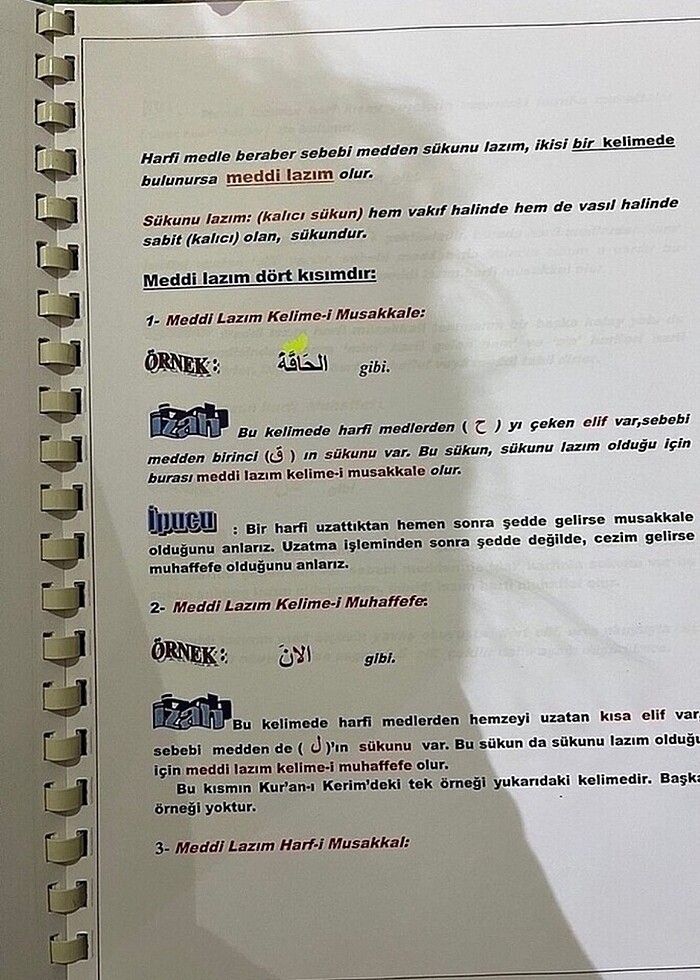 Harfi medle beraber sebebi medden sükunu lazım, ikisi bir kelimede
bulunursa meddi lazım olur.
Sükunu lazım: (kalıcı sükun) hem vakıf halinde hem de vasıl halinde
sabit (kalıcı) olan, sükundur.
Meddi lazım dört kısımdır:
1- Meddi Lazım Kelime-i Musakkale:
ÖRNEK: اَلْحَاقَّةُ gibi.
izah Bu kelimede harfi medlerden ( ح ) yı çeken elif var,sebebi
medden birinci (ق ) ın sükunu var. Bu sükun, sükunu lazım olduğu için
burası meddi lazım kelime-i musakkale olur.
İpucu : Bir harfi uzattıktan hemen sonra şedde gelirse musakkale
olduğunu anlarız. Uzatma işleminden sonra şedde değilde, cezim gelirse
muhaffefe olduğunu anlarız.
2- Meddi Lazım Kelime-i Muhaffefe:
ÖRNEK: الانَ gibi.
izah Bu kelimede harfi medlerden hemzeyi uzatan kısa elif var,
sebebi medden de ( ل )'ın sükunu var. Bu sükun da sükunu lazım olduğu
için meddi lazım kelime-i muhaffefe olur.
Bu kısmın Kur'an-ı Kerim'deki tek örneği yukarıdaki kelimedir. Başka
örneği yoktur.
3- Meddi Lazım Harf-i Musakkal: